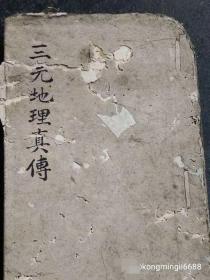 三元地理真傳
kongmingji6688